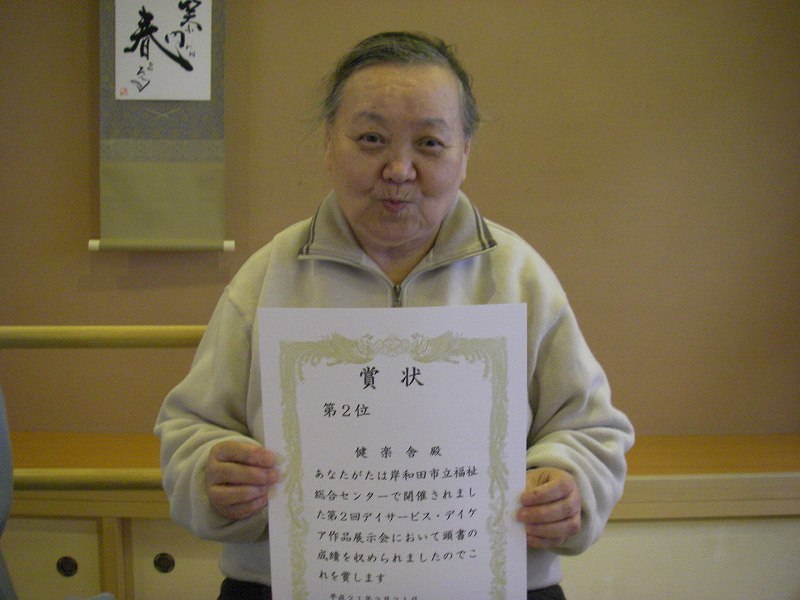 春
賞状
第2位
健楽舎殿
あなたがたは岸和田市立福祉
総合センターで開催されまし
た第2回デイサービス・デイケ
ア作品展示会において頭書の
成績を収められましたのでこ
れを賞します